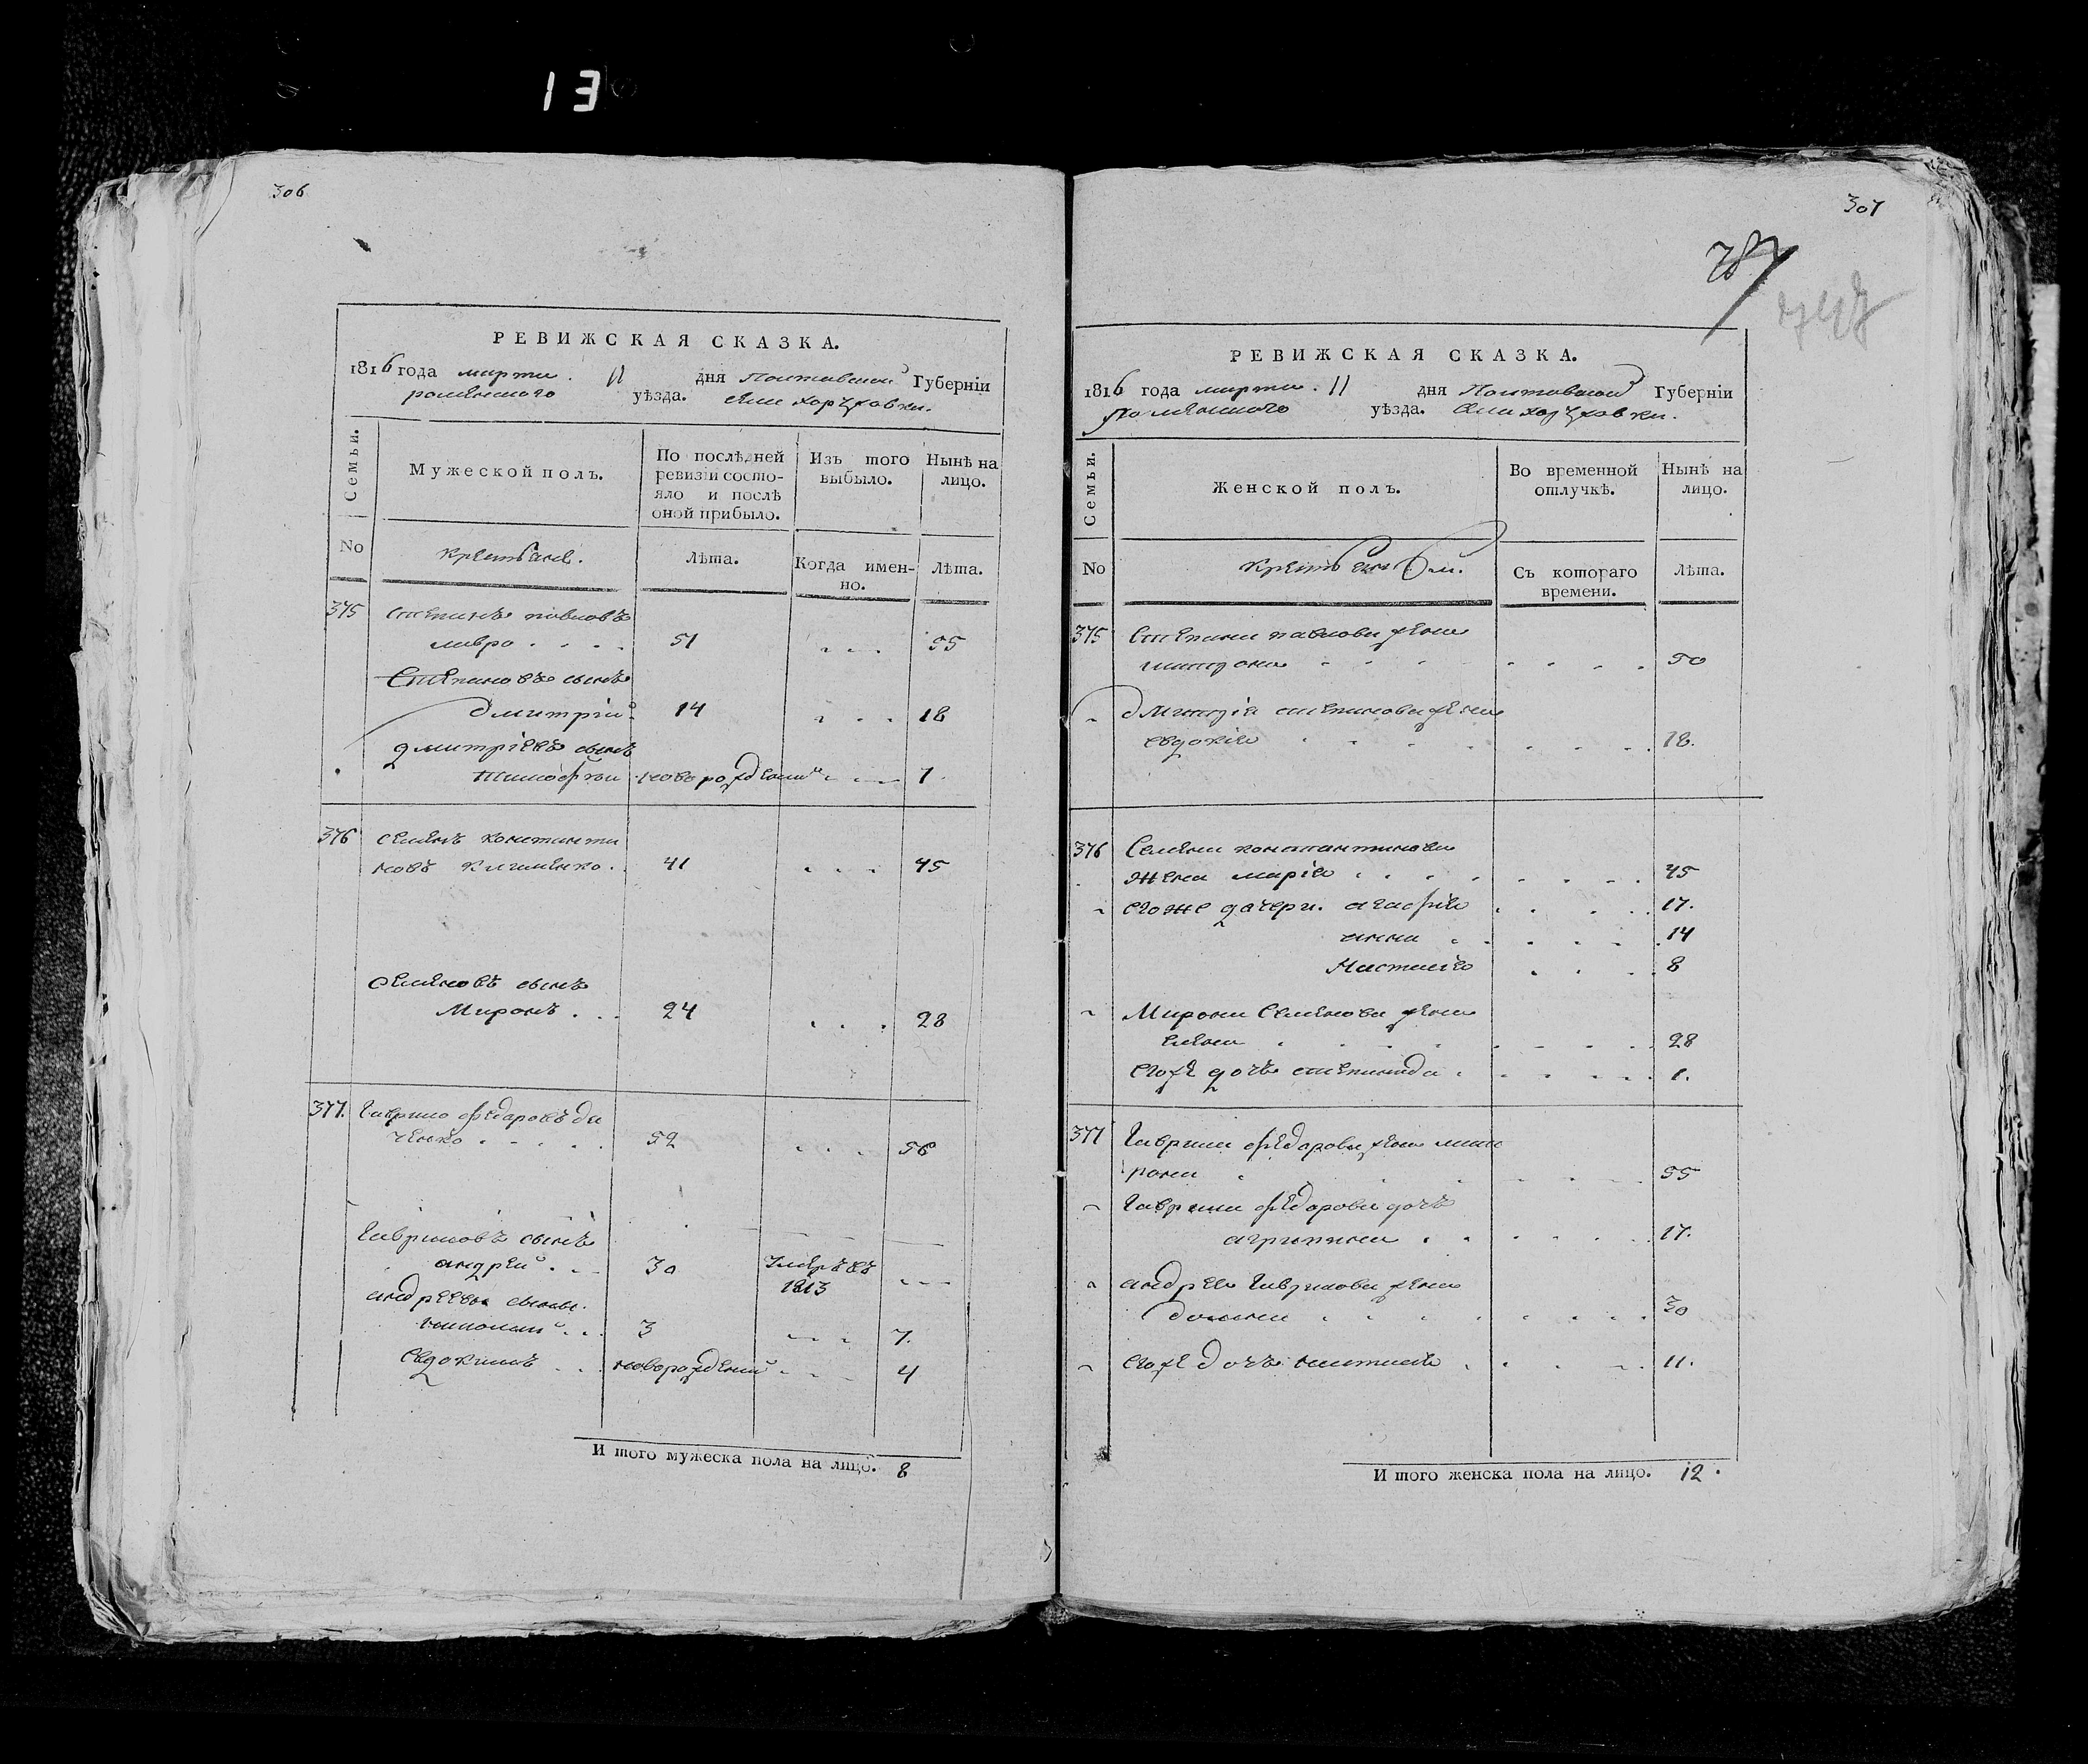 13
306
РЕВИЖСКАЯ СКАЗКА.
1816 года марта 11 дня Полтавской Губерніи
роменского уѣзда. села
Семьи.
Мужеской полъ.
По послѣдней ревизіи состояло и послѣ оной прибыло.
Изъ того выбыло.
Нынѣ на лицо.
No
крестьяне.
Лѣта.
Когда именно.
Лѣта.
375 Степанъ павловъ
лавро 51 55
Степановъ сынъ
дмитрій 14 18
дмитріевъ сынъ
тимофѣй новорожденій 1
376 семенъ константи
новъ клименко 41 45
семеновъ сынъ
Миронъ 24 28
377. Гаврило федаровъ дя
ченко 52 56
Гавриловъ сынъ
андрей 30 Умерѣ въ 1813
андреевы сыны.
3 7.
Евдокимъ новорожденій 4
И того мужеска пола на лицо. 8
307
787
РЕВИЖСКАЯ СКАЗКА.
1816 года марта 11 дня Полтавской Губерніи
Роменского уѣзда. села
Семьи.
Женской полъ.
Во временной отлучкѣ.
Нынѣ на лицо.
No
Съ котораго времени.
Лѣта.
375 Степана павлова жена
50
дмитрія степанова жена
евдокія 18.
376 Семена константинова
жена марія 45
егоже дочери. агафія 17.
анна 14
Настасія 8
Мирона Семенова жена
елена 28
егоже дочъ степанида 1.
377 Гаврила федарова жена мат
рона 55
Гаврила федарова дочъ
агрипина 17.
андрея Гаврилова жена
домна 30
егоже дочъ настасія 11.
И того женска пола на лицо. 12.